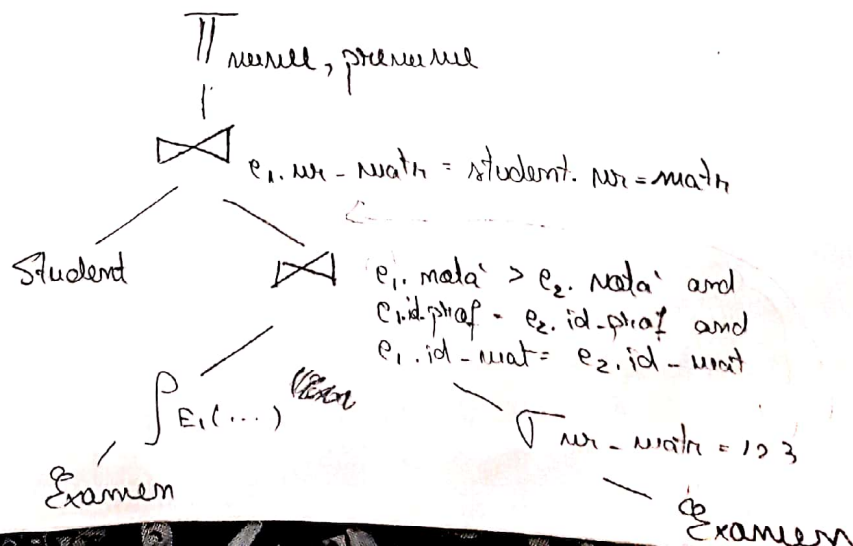 π nume, prenume
⋈ e₁. nr-matr = student. nr = matr
Student
⋈ e₁. notă > e₂. notă and
e₁.id-prof = e₂. id-prof and
e₁. id-mat = e₂. id-mat
ρ E₁(...)
σ nr-matr = 123
Examen
Examen